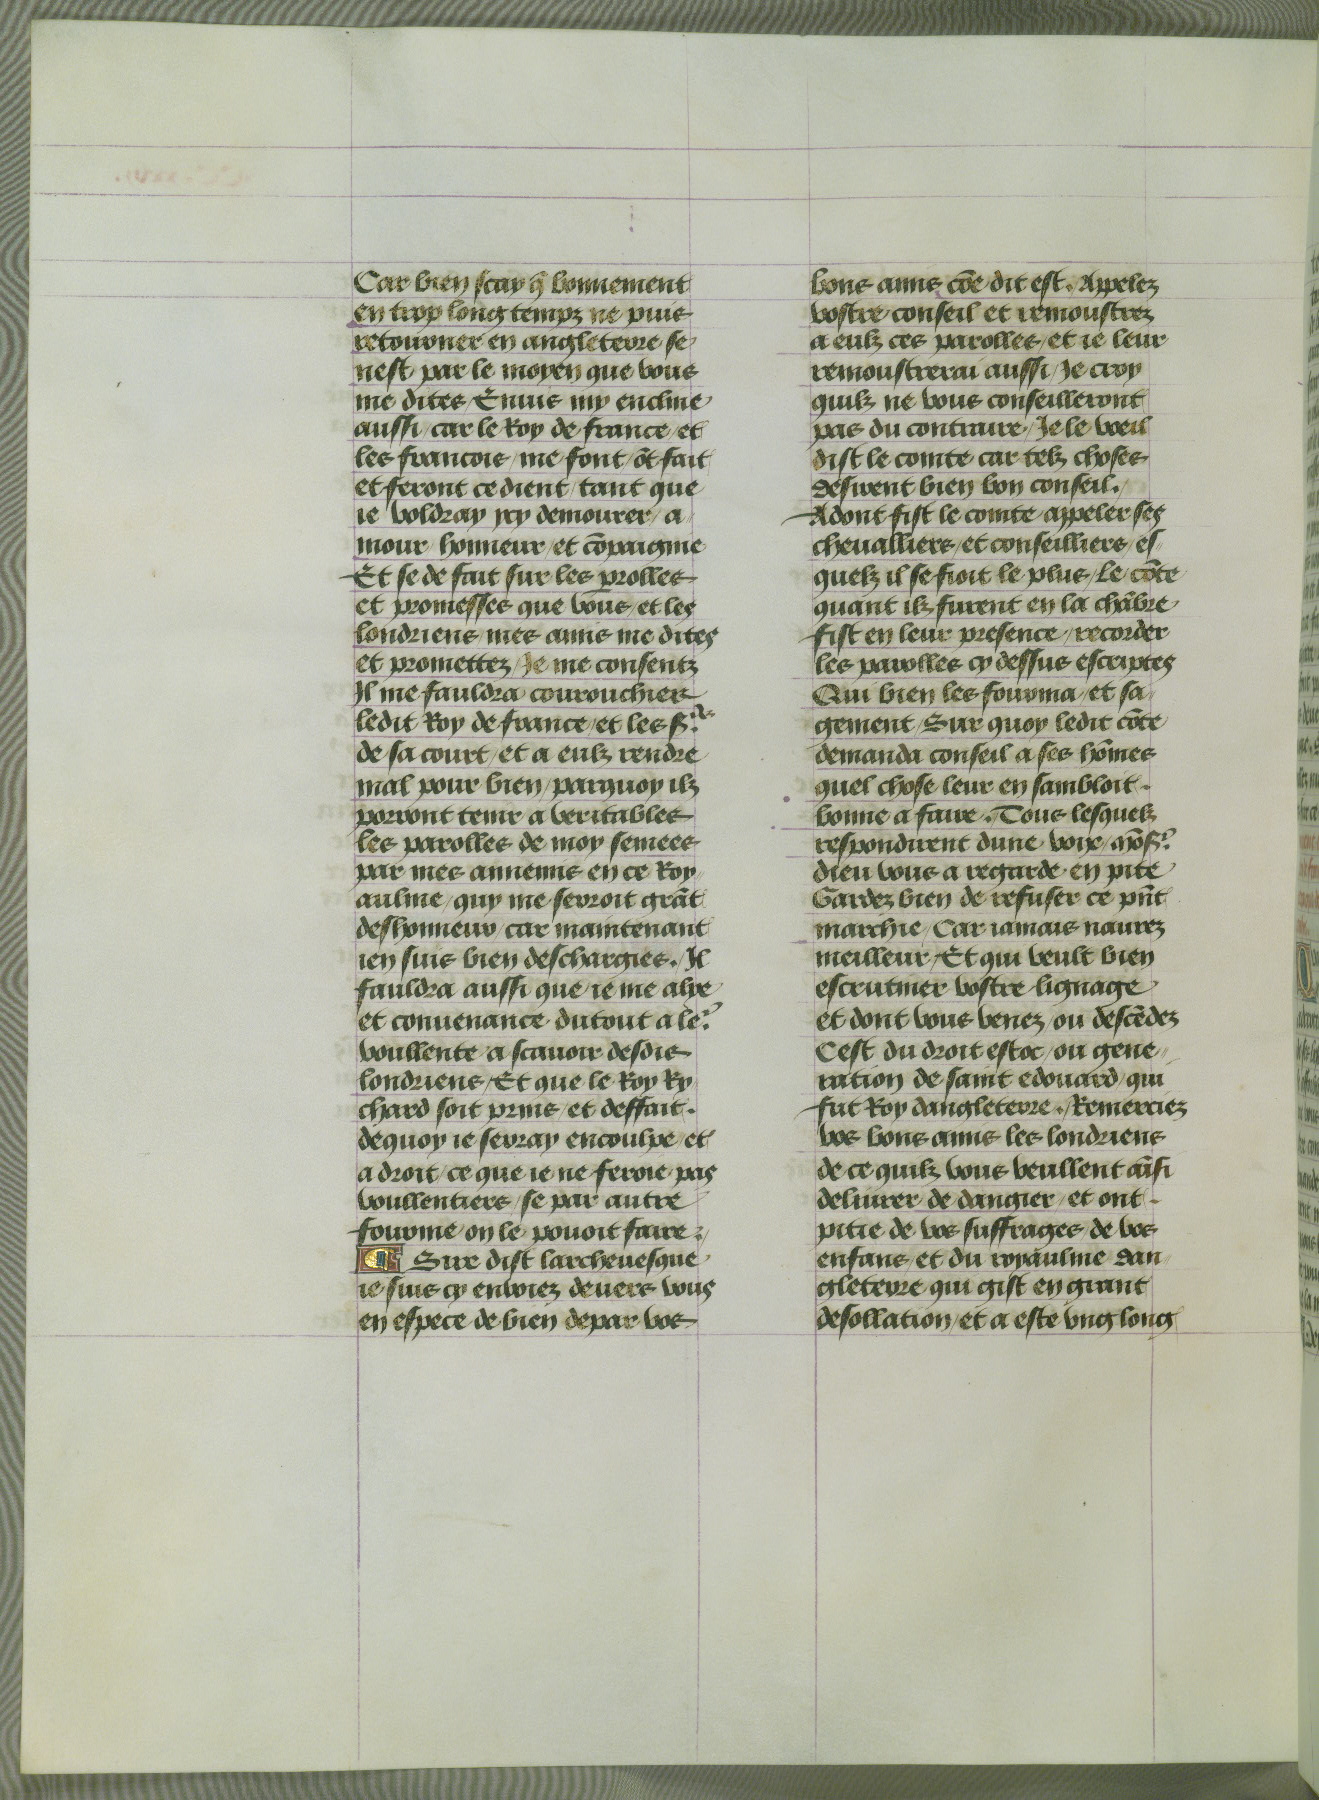 Car bien scay q̃ bonnement
en trop long tempz ne puis
retourner en angleterre se
nest par le moyen que vous
me dites / Enuis my encline
aussi / car le Roy de france / et
les francois / me font / ōt fait
et feront ce dient / tant que
ie voldray ycy demourer / a
mour / honneur / et cōpaignie
Et se de fait sur les ꝑolles
et promesses que vous / et les
londriens mes amis me dites
et promettez / Je me consentz
Il me fauldra courouchier
ledit Roy de france / et les sʳˢ
de sa court / et a eulz rendre
mal pour bien / parquoy ilz
porront tenir a veritables
les parolles de moy semees
par mes annemis en ce Roy
aulme / quy me seroit grāt
deshonneur / car maintenant
ien suis bien deschargies. Il
fauldra aussi que ie me alye
et conuenance du tout a leʳ
voullente a scauoir desdis
londriens / Et que le Roy Ry
chard soit prins / et deffait.
de quoy ie serray encoulpe / et
a droit / ce que ie ne feroie pas
voullentiers / se par autre
fourme / on le pouoit faire
Sire dist larcheuesque
ie suis cy enuoiez deuers vous
en espece de bien depar vos
bons amis cōe dit est. Appelez
vostre conseil et remoustrez
a eulz ces parolles / et ie leur
remoustrerai aussi / Je croy
quilz ne vous conseilleront
pas du contraire / Je le voeil
dist le comte car telz choses
desirent bien bon conseil.
Adont fist le comte appeler ses
cheualliers / et conseilliers / es
quelz il se fioit le plus / Le cōte
quant ilz furent en la chābre
fist en leur presence / recorder
les parolles cy dessus escriptes
Qui bien les fourma / et sa
gement / Sur quoy ledit cōte
demanda conseil a ses hōmes
quel chose leur en sambloit
bonne a faire. Tous lesquelz
respondirent dune voix / mōsʳ
dieu vous a regarde en pite
Gardez bien de refuser ce pn̄t
marchie / Car iamais naurez
meilleur / Et qui veult bien
escrutiner vostre lignage
et dont vous venez / ou descēdez
Cest du droit estoc / ou gene
ration de saint edouard / qui
fut Roy dangleterre. Remerciez
vos bons amis les londriens
de ce quilz vous veullent aīsi
deliurer de dangier / et ont
pitie de vos suffrages de vos
enfans et du royaulme dan
gleterre qui gist en grant
desollation / et a este vng long